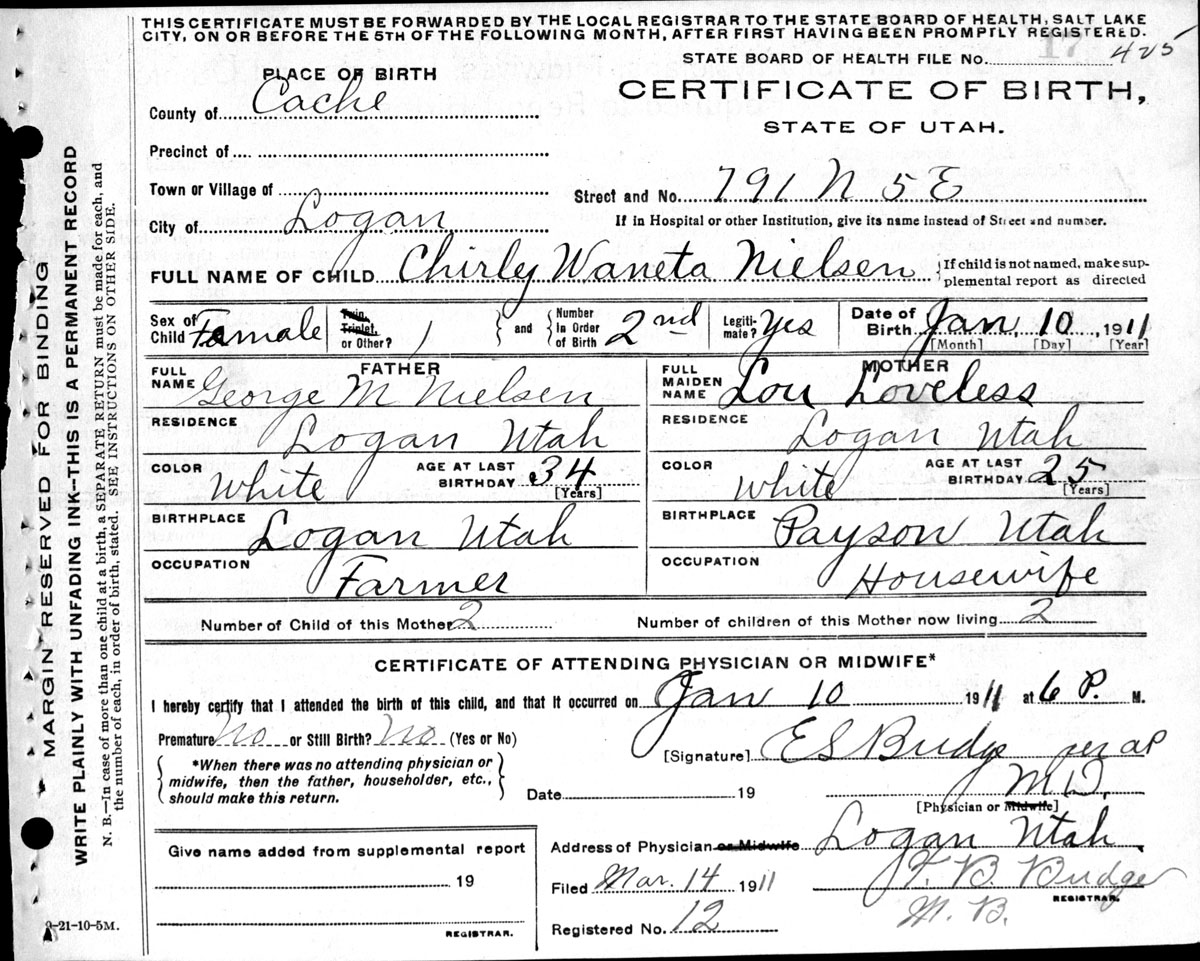 THIS CERTIFICATE MUST BE FORWARDED BY THE LOCAL REGISTRAR TO THE STATE BOARD OF HEALTH, SALT LAKE
CITY, ON OR BEFORE THE 5TH OF THE FOLLOWING MONTH, AFTER FIRST HAVING BEEN PROMPTLY REGISTERED.
STATE BOARD OF HEALTH FILE NO. 425
PLACE OF BIRTH
CERTIFICATE OF BIRTH,
County of Cache
STATE OF UTAH.
Precinct of
Town or Village of
Street and No. 791 N 5 E
City of Logan
If in Hospital or other Institution, give its name instead of Street and number.
FULL NAME OF CHILD Chirley Waneta Nielsen {If child is not named, make sup-
plemental report as directed
Sex of Child Female Twin, Triplet, or Other? 1 } and { Number In Order of Birth 2nd Legiti- mate? Yes Date of Birth Jan. 10 1911
[Month] [Day] [Year]
FATHER MOTHER
FULL NAME George M Nielsen FULL MAIDEN NAME Lou Loveless
RESIDENCE Logan Utah RESIDENCE Logan Utah
COLOR White AGE AT LAST BIRTHDAY 34 [Years] COLOR White AGE AT LAST BIRTHDAY 25 [Years]
BIRTHPLACE Logan Utah BIRTHPLACE Payson Utah
OCCUPATION Farmer OCCUPATION Housewife
Number of Child of this Mother 2 Number of children of this Mother now living 2
CERTIFICATE OF ATTENDING PHYSICIAN OR MIDWIFE*
I hereby certify that I attended the birth of this child, and that it occurred on Jan 10 1911 at 6 P. M.
Premature No or Still Birth? No (Yes or No)
[Signature] E S Budge per a P
*When there was no attending physician or
midwife, then the father, householder, etc.,
should make this return.
Date 19 M.D.
[Physician or Midwife]
Address of Physician or Midwife Logan Utah.
Give name added from supplemental report
19
REGISTRAR.
Filed Mar. 14 1911 T. B. Budge
REGISTRAR.
M. B.
Registered No. 12
MARGIN RESERVED FOR BINDING
WRITE PLAINLY WITH UNFADING INK—THIS IS A PERMANENT RECORD
N. B.—In case of more than one child at a birth, a SEPARATE RETURN must be made for each, and
the number of each, in order of birth, stated. SEE INSTRUCTIONS ON OTHER SIDE.
-21-10-5M.